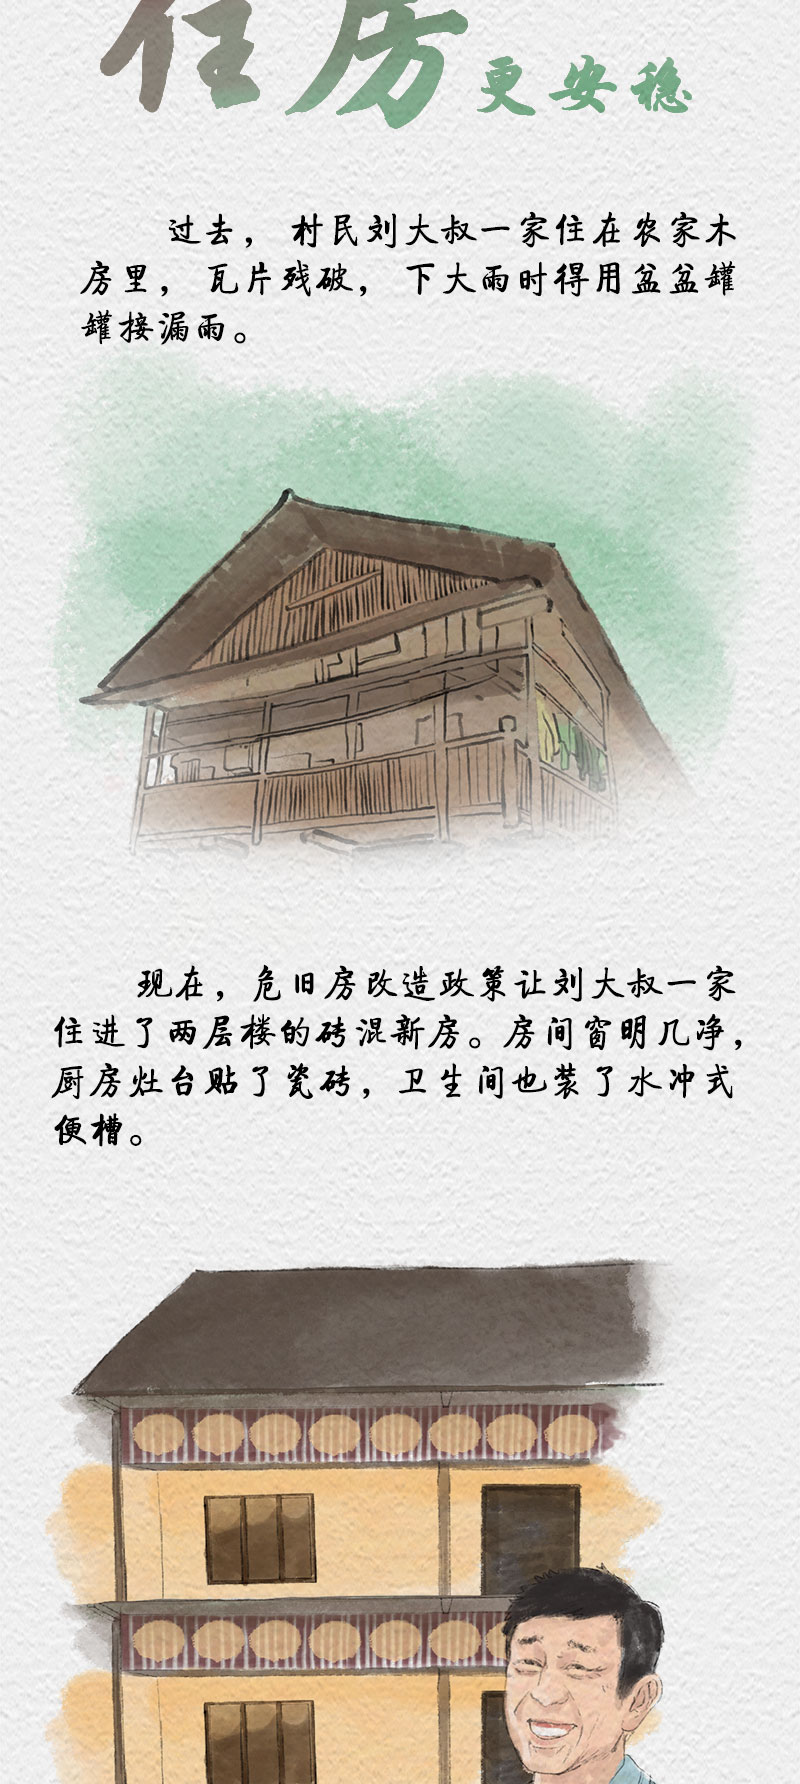 住房更安稳
过去， 村民刘大叔一家住在农家木
房里， 瓦片残破， 下大雨时得用盆盆罐
罐接漏雨。
现在，危旧房改造政策让刘大叔一家
住进了两层楼的砖混新房。房间窗明几净，
厨房灶台贴了瓷砖，卫生间也装了水冲式
便槽。